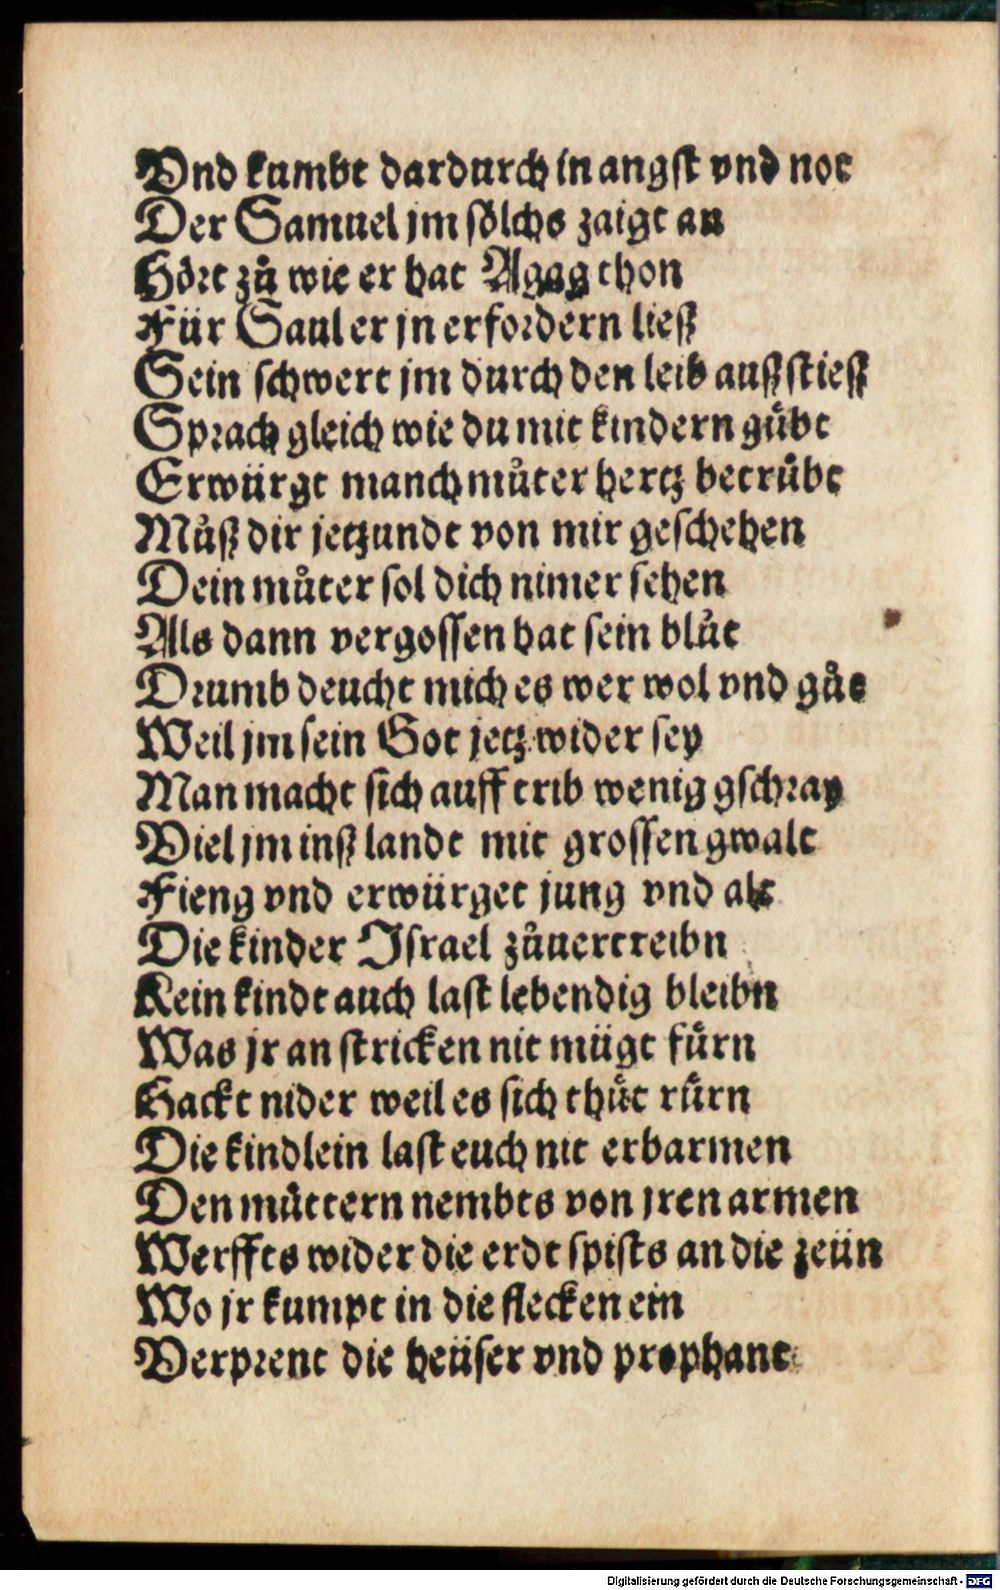 Vnd kumbt dardurch in angst vnd not
Der Samuel jm soͤlchs zaigt an
Hoͤrt zuͦ wie er hat Agag thon
Für Saul er jn erfordern ließ
Sein schwert jm durch den leib außstieß
Sprach gleich wie du mit kindern guͤbt
Erwürgt manch muͦter hertz betruͤbt
Muͦß dir jetzundt von mir geschehen
Dein muͦter sol dich nimer sehen
Als dann vergossen hat sein bluͦt
Drumb deucht mich es wer wol vnd guͦt
Weil jm sein Got jetz wider sey
Man macht sich auff trib wenig gschray
Viel jm inß landt mit grossen gwalt
Fieng vnd erwürget jung vnd alt
Die kinder Israel zuͦuertreibn
Kein kindt auch last lebendig bleibn
Was jr an stricken nit mügt fuͤrn
Hackt nider weil es sich thuͤt ruͤrn
Die kindlein last euch nit erbarmen
Den muͤttern nembts von jren armen
Werffts wider die erdt spists an die zeün
Wo jr kumpt in die flecken ein
Verprent die heüser vnd prophant
Digitalisierung gefördert durch die Deutsche Forschungsgemeinschaft - DFG